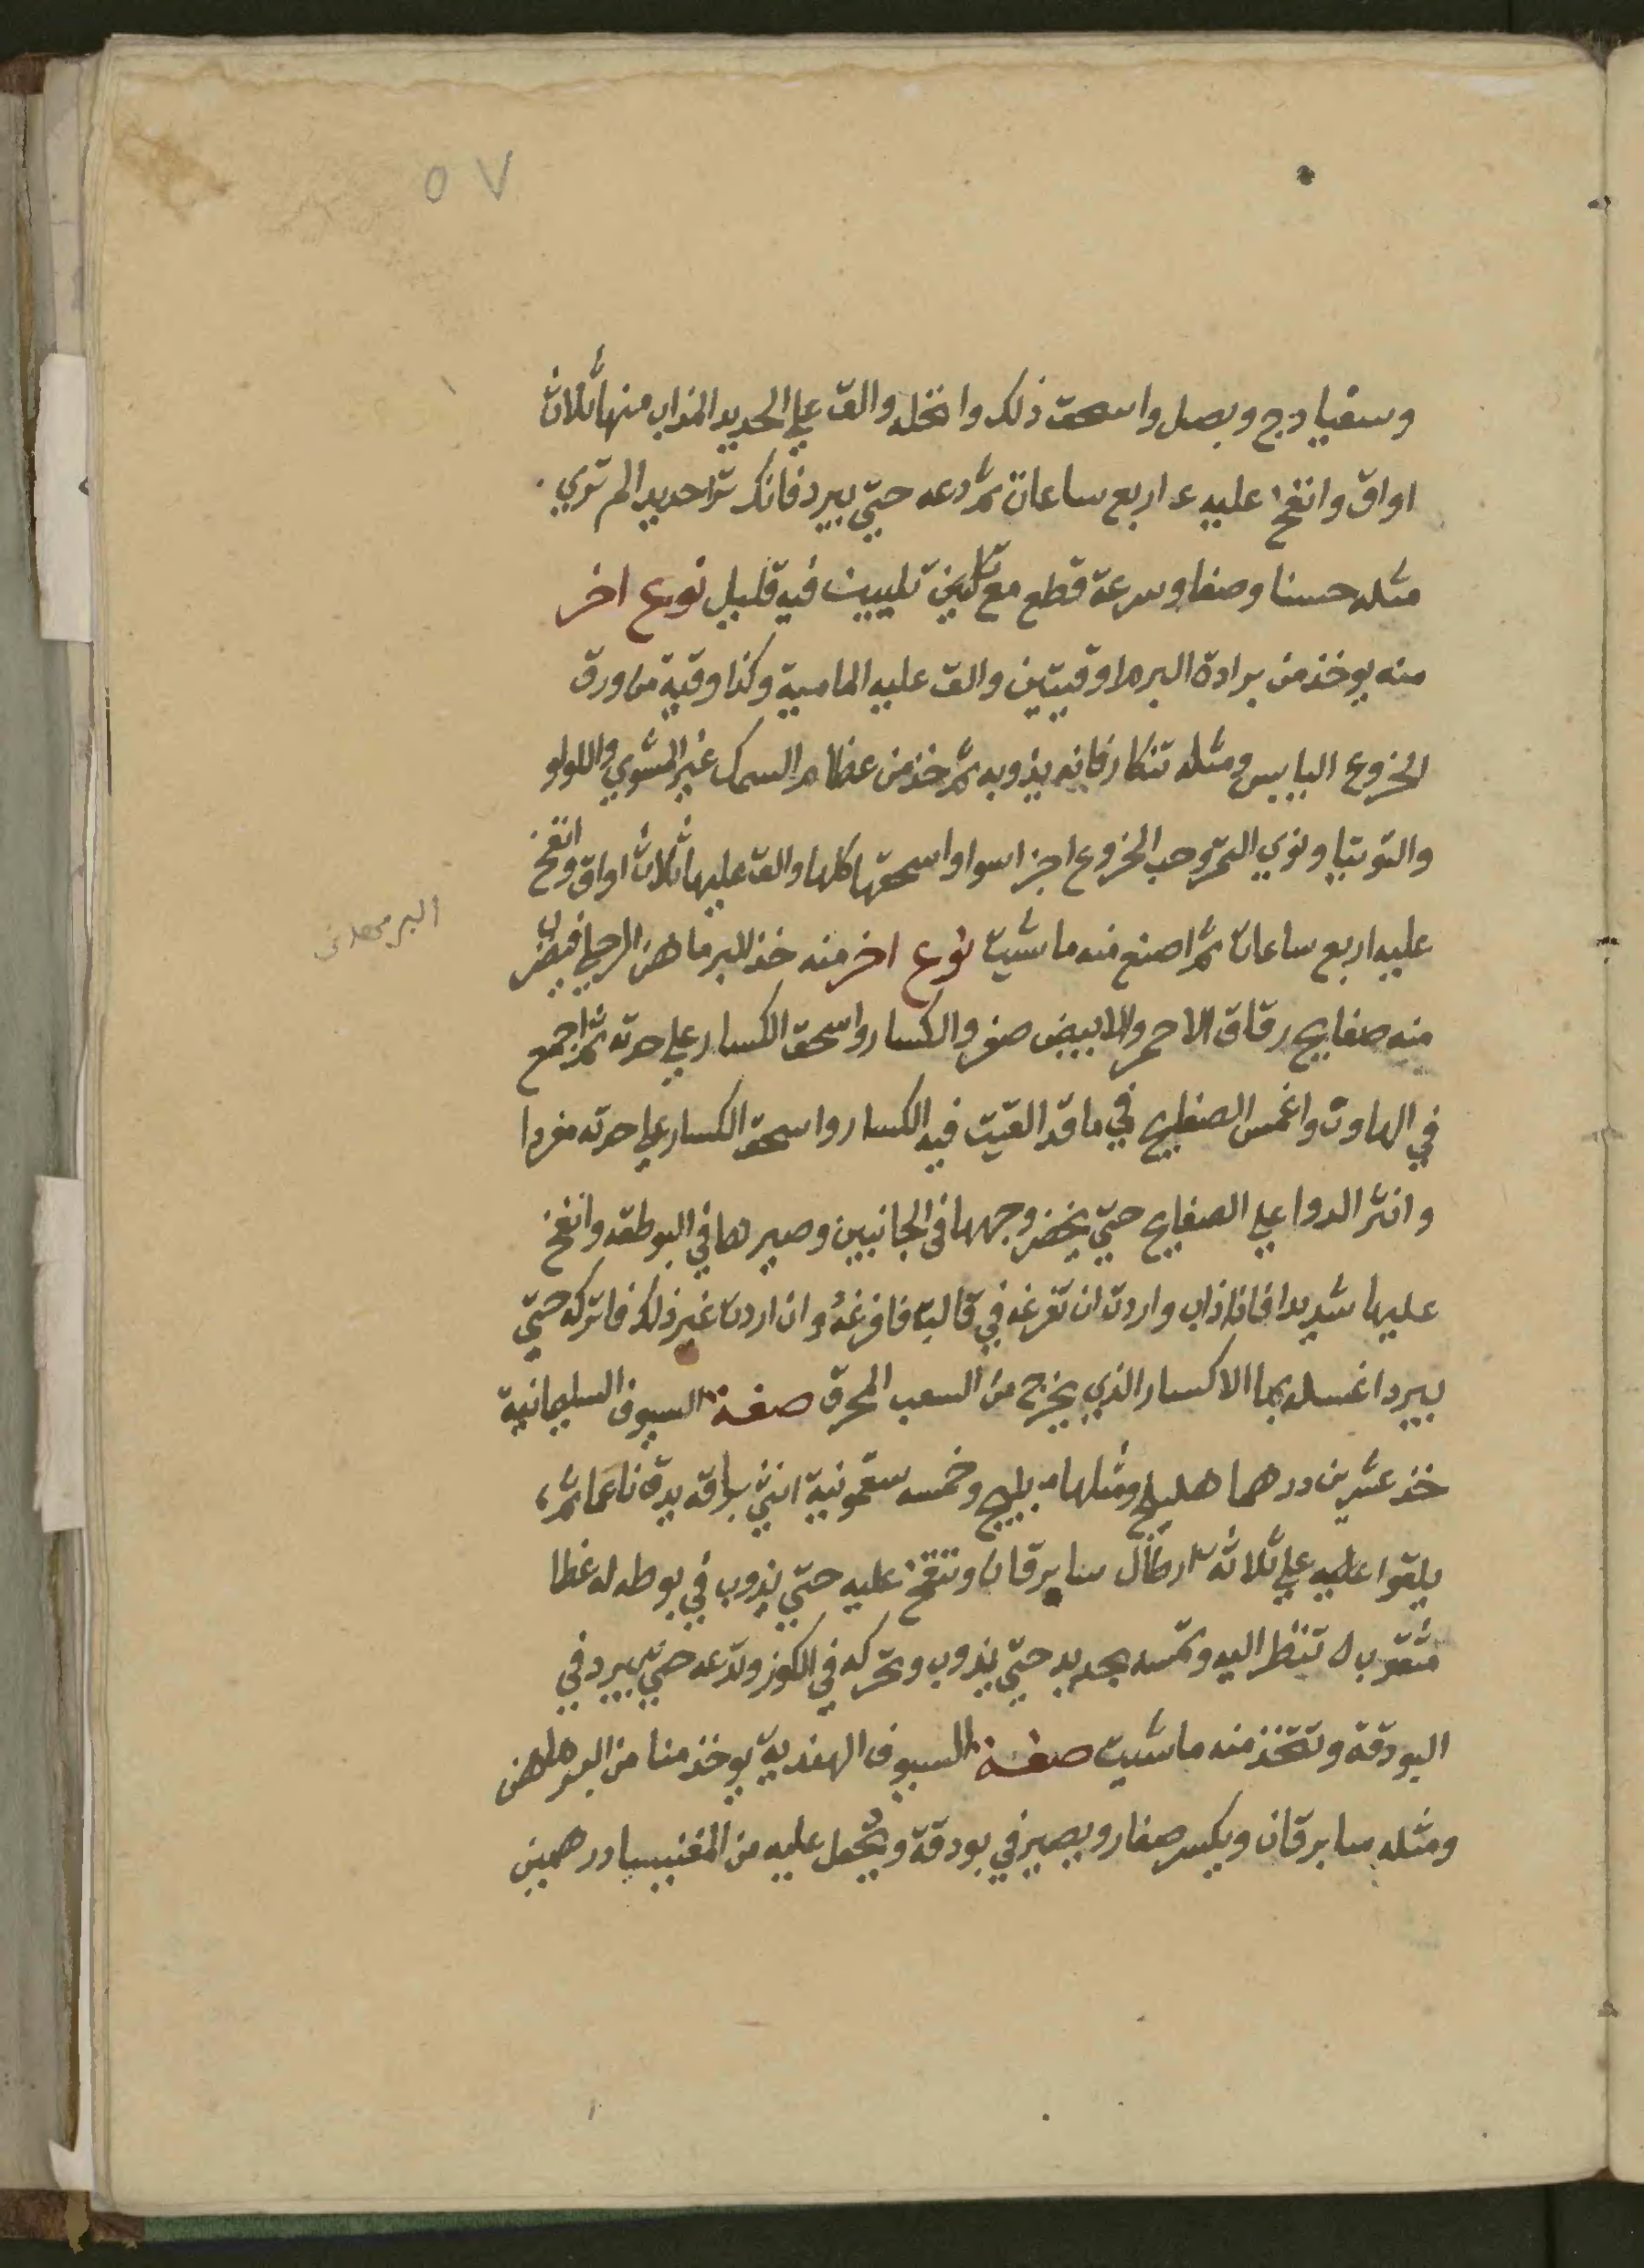 ٥٧
وسفيادج وبصل واسحق ذلك وانخله والق علي الحديد المذاب منها ثلاث
اواق وانفخ عليه اربع ساعات ثم دعه حتي يبرد فانك ترا حديدا لم تري
مثله حسنا وصفا وسرعة قطع مع تليين فيه قليل نوع اخر
منه يوخذ من برادة البرم اوقيتين والق عليه الماسية وكذا وقية من ورق
الخروع اليابس ومثله تنكار فانه يذوبه ثم خذ من عظام السمك غير المشوي واللولو
والتوتيا ونوي التمر وحب الخروع اجزا سوا واسحقها كلها والق عليها ثلاث اواق وانفخ
عليه اربع ساعات ثم اصنع منه ما شيت نوع اخر منه خذ البرماهن الرحلي فيضرب
منه صفايح رقاق الاحمر والابيض صغر والكسار واسحق الكسار علي حدته ثم اجمع
في الهاون واغمس الصفايح في ما قد القيت فيه الكسار واسحق الكسار علي حدته مفردا
وانثر الدوا علي الصفايح حتي يخضر وجهها في الجانبين وصيرها في البوطقه وانفخ
عليها شديدا فاذا ذاب واردت ان تفرغه في قالب فافرغه وان اردت غير ذلك فاتركه حتي
يبرد اغسله بما الاكسار الذي يخرج من السعب المحرق صفة السيوف السليمانية
خذ عشرين درهما هليلج ومثلها بليلج وخمسه سقمونية انثي يدق ناعما ثم
يلقوا عليه علي ثلاثة ارطال سابرقان وتنفخ عليه حتي يذوب في بوطه له غطا
مثقوب تنظر اليه وتمسه بحديد حتي يذوب وتحركه في الكوز وتدعه حتي يبرد في
البودقة وتتخذ منه ما شيت صفة السيوف الهندية يوخذ منا من البرماهن
ومثله سابرقان ويكسر صغار ويصير في بودقة ويحمل عليه من المغنيسيا درهمين